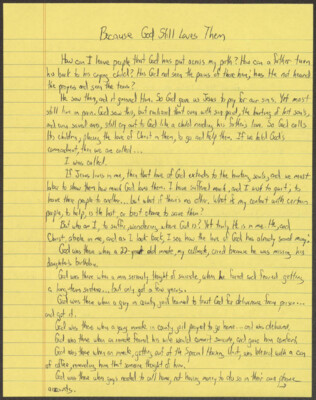 Because God Still Loves Them
How can I leave people that God has put across my path? How can a father turn
his back to his crying child? Has God not seen the pains of those here, has He not heard
the prayers and seen the tears?
He saw them, and it grieved Him. So God gave us Jesus to pay for our sins. Yet most
still live in pain. God saw this, and realized that even with sins paid, the hurting of lost souls,
and even saved ones, still cry out to God like a child needing his father's love. So God calls
His children, placing the love of Christ in them, to go out help them. If we fulfill God's
commandment, then we are called...
I was called.
If Jesus lives in me, then that love of God extends to the hurting souls, and we must
labor to show them how much God loves them. I have suffered much, and I want to quit, to
leave these people to another... but what if there is no other. What if my contact with certain
people, to help, is the last, or best chance to save them?
But who am I, to suffer wondering where God is? Yet truly He is in me. He, and
Christ, abide in me, and as I look back, I see how the love of God has already saved many!
God was there when a 22-year old inmate, my cellmate, cried because he was missing his
daughter's birthday.
God was there when a man seriously thought of suicide, when he feared each facing getting
a long-term sentence... but only got a few years.
God was there when a guy in county jail learned to trust God for deliverance from prison...
and got it.
God was there when a guy, inmate in county jail prayed to go home - and was delivered.
God was there when an inmate feared his wife would commit suicide, and gave him comfort.
God was there when an inmate, getting out of the Special Housing Unit, was blessed with a can
of coffee, reminding him that someone thought of him.
God was there when guys needed to call home, not having money to do so in their own phone
accounts.